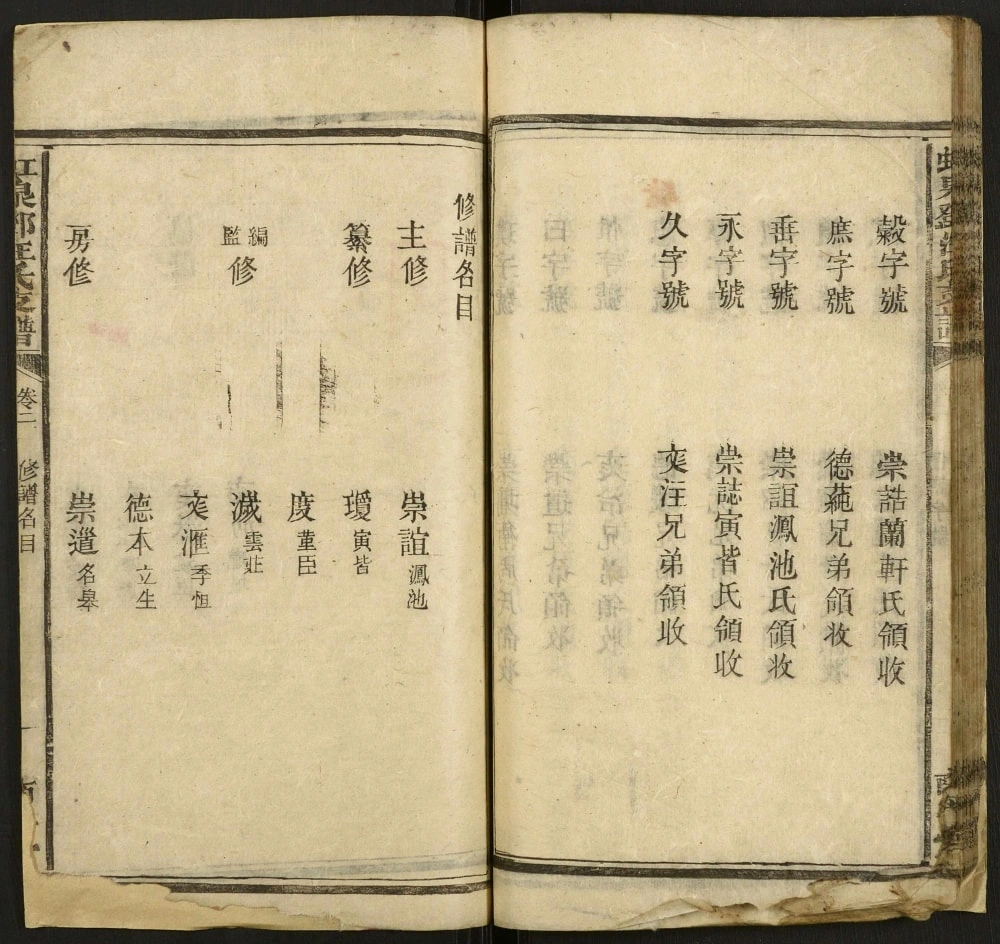 穀字號 崇誥蘭軒氏領收
庶字號 德蒓兄弟領收
垂字號 崇誼鳳池氏領收
永字號 崇誌寅皆氏領收
久字號 奕汪兄弟領收
修譜名目
主修 崇誼鳳池
纂修 瓊寅皆
度葦臣
編監修 瀻雲莊
奕滙季恒
德本立生
房修 崇進名皋
氏支譜 卷二 修譜名目